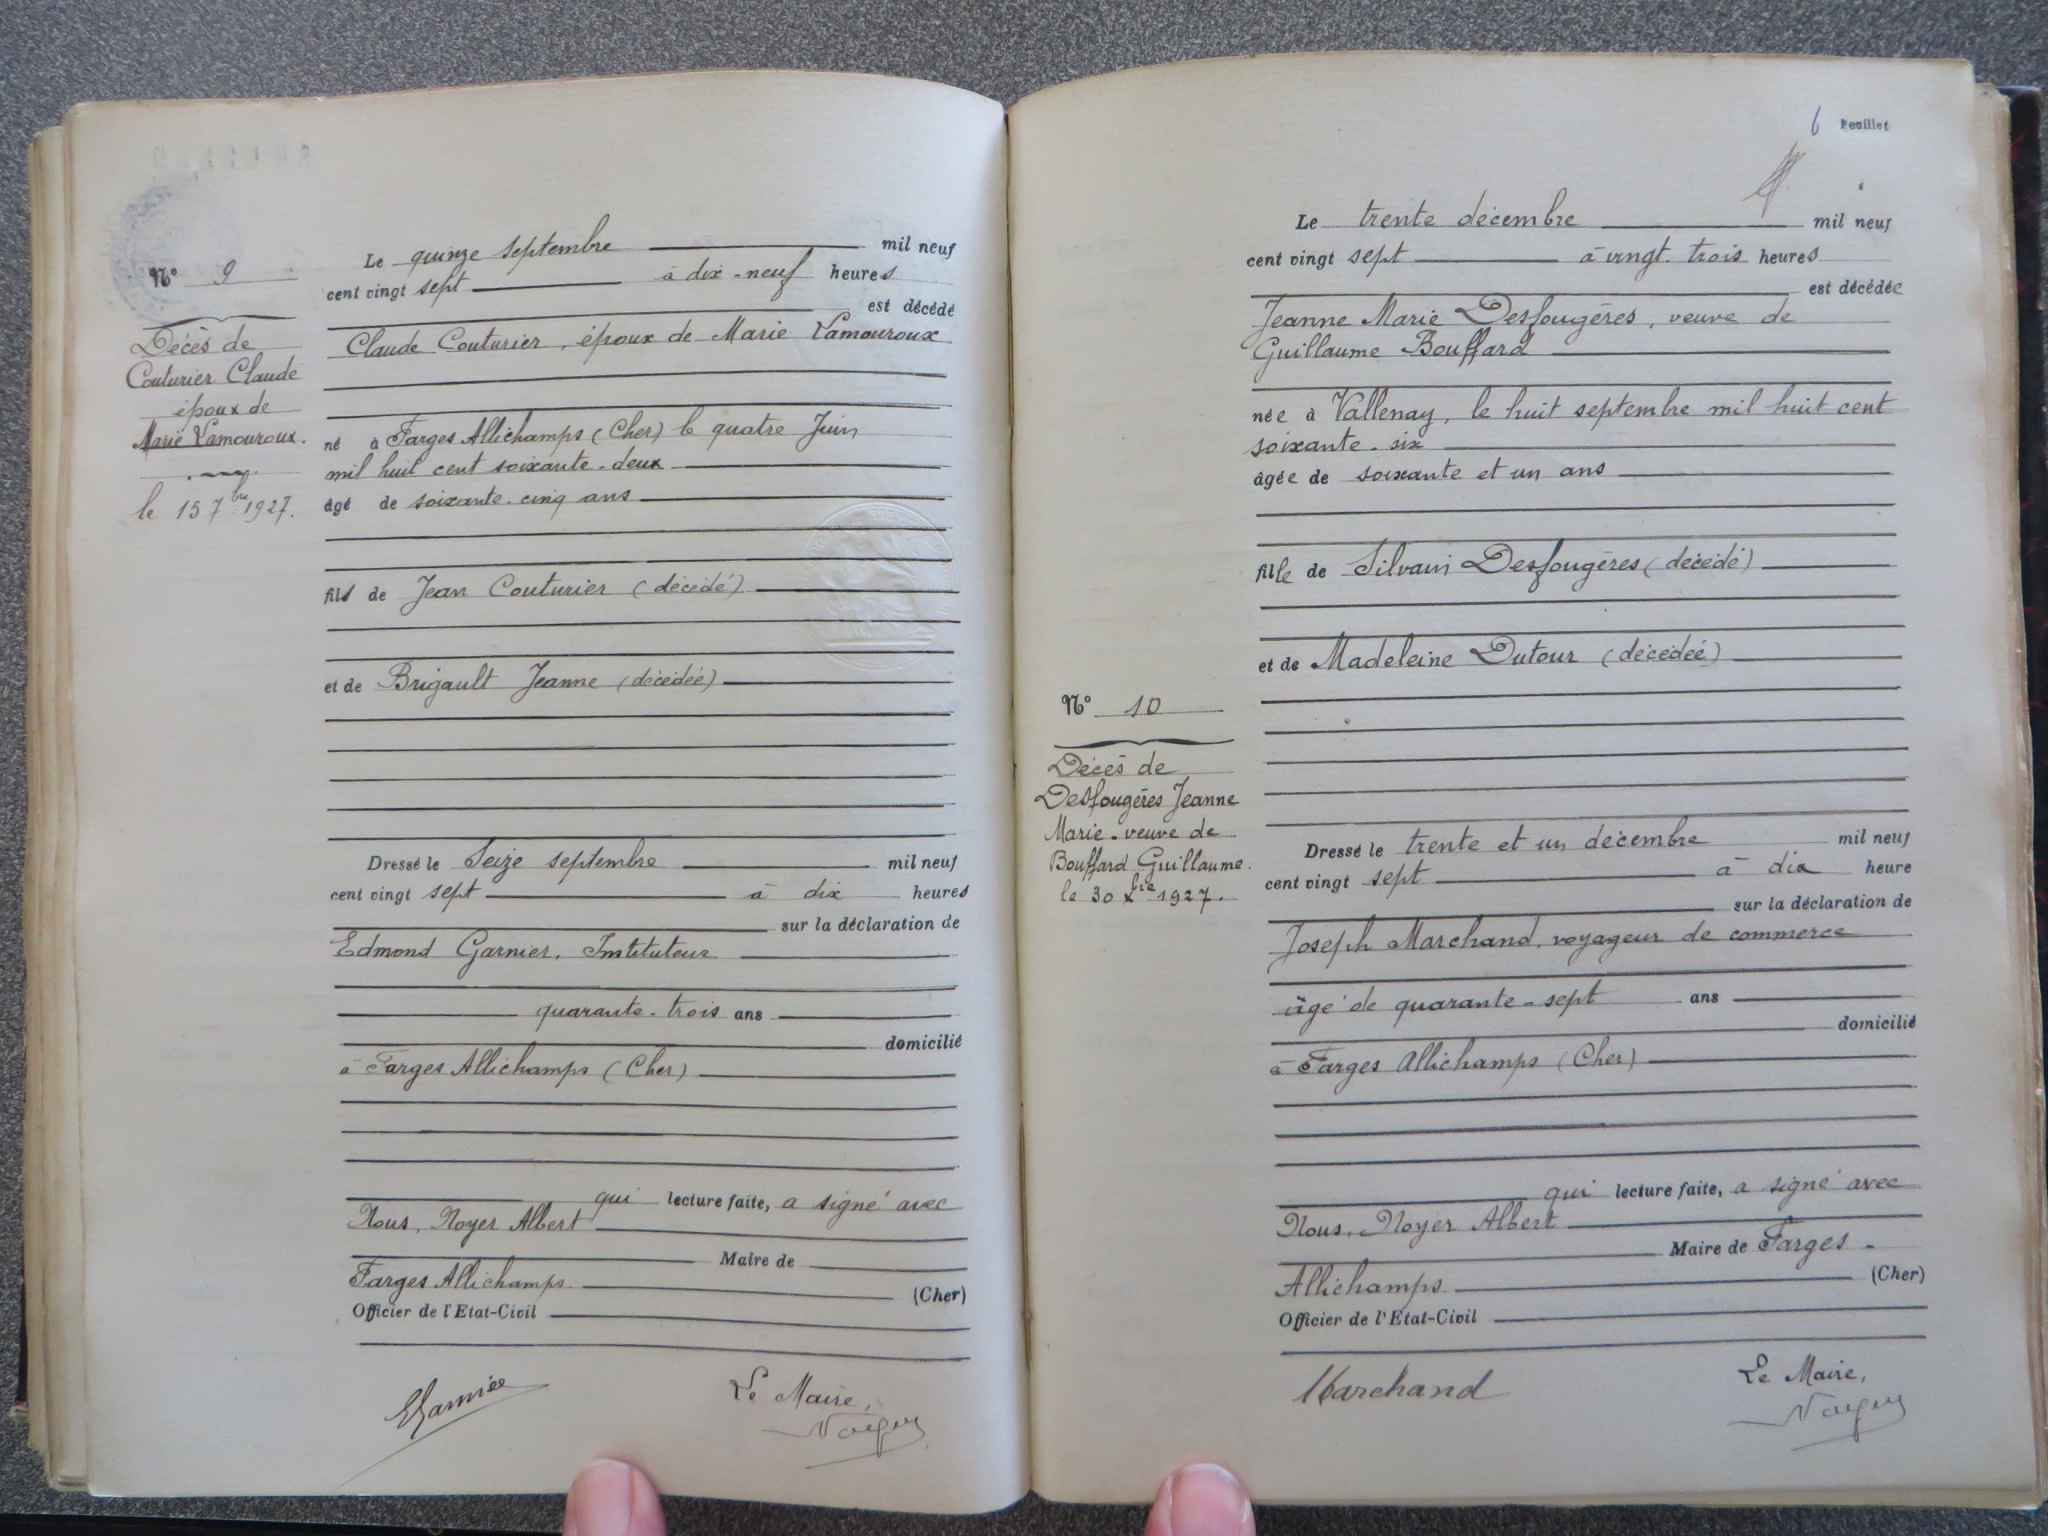 N° 9
Décès de
Couturier Claude
époux de
Marie Lamouroux.
le 15 7bre 1927.
Le quinze septembre mil neuf
cent vingt sept à dix-neuf heures
est décédé
Claude Couturier, époux de Marie Lamouroux
né à Farges Allichamps (Cher) le quatre Juin
mil huit cent soixante-deux
âgé de soixante-cinq ans
fils de Jean Couturier (décédé)
et de Brigault Jeanne (décédée)
Dressé le Seize septembre mil neuf
cent vingt sept à dix heures
sur la déclaration de
Edmond Garnier, Instituteur
quarante-trois ans
domicilié
à Farges Allichamps (Cher)
qui lecture faite, a signé avec
Nous, Noyer Albert
Maire de
Farges Allichamps
(Cher)
Officier de l'Etat-Civil
EGarnier
Le Maire,
Noyer
6 Feuillet
Le trente décembre mil neuf
cent vingt sept à vingt-trois heures
est décédée
Jeanne Marie Desfougères, veuve de
Guillaume Bouffard
née à Vallenay, le huit septembre mil huit cent
soixante-six
âgée de soixante et un ans
fille de Silvain Desfougères (décédé)
et de Madeleine Dutour (décédée)
N° 10
Décès de
Desfougères Jeanne
Marie-veuve de
Bouffard Guillaume.
le 30 Xbre 1927.
Dressé le trente et un décembre mil neuf
cent vingt sept à dix heure
sur la déclaration de
Joseph Marchand, voyageur de commerce
âgé de quarante-sept ans
domicilié
à Farges Allichamps (Cher)
qui lecture faite, a signé avec
Nous, Noyer Albert
Maire de Farges-
Allichamps (Cher)
Officier de l'Etat-Civil
Marchand
Le Maire,
Noyer